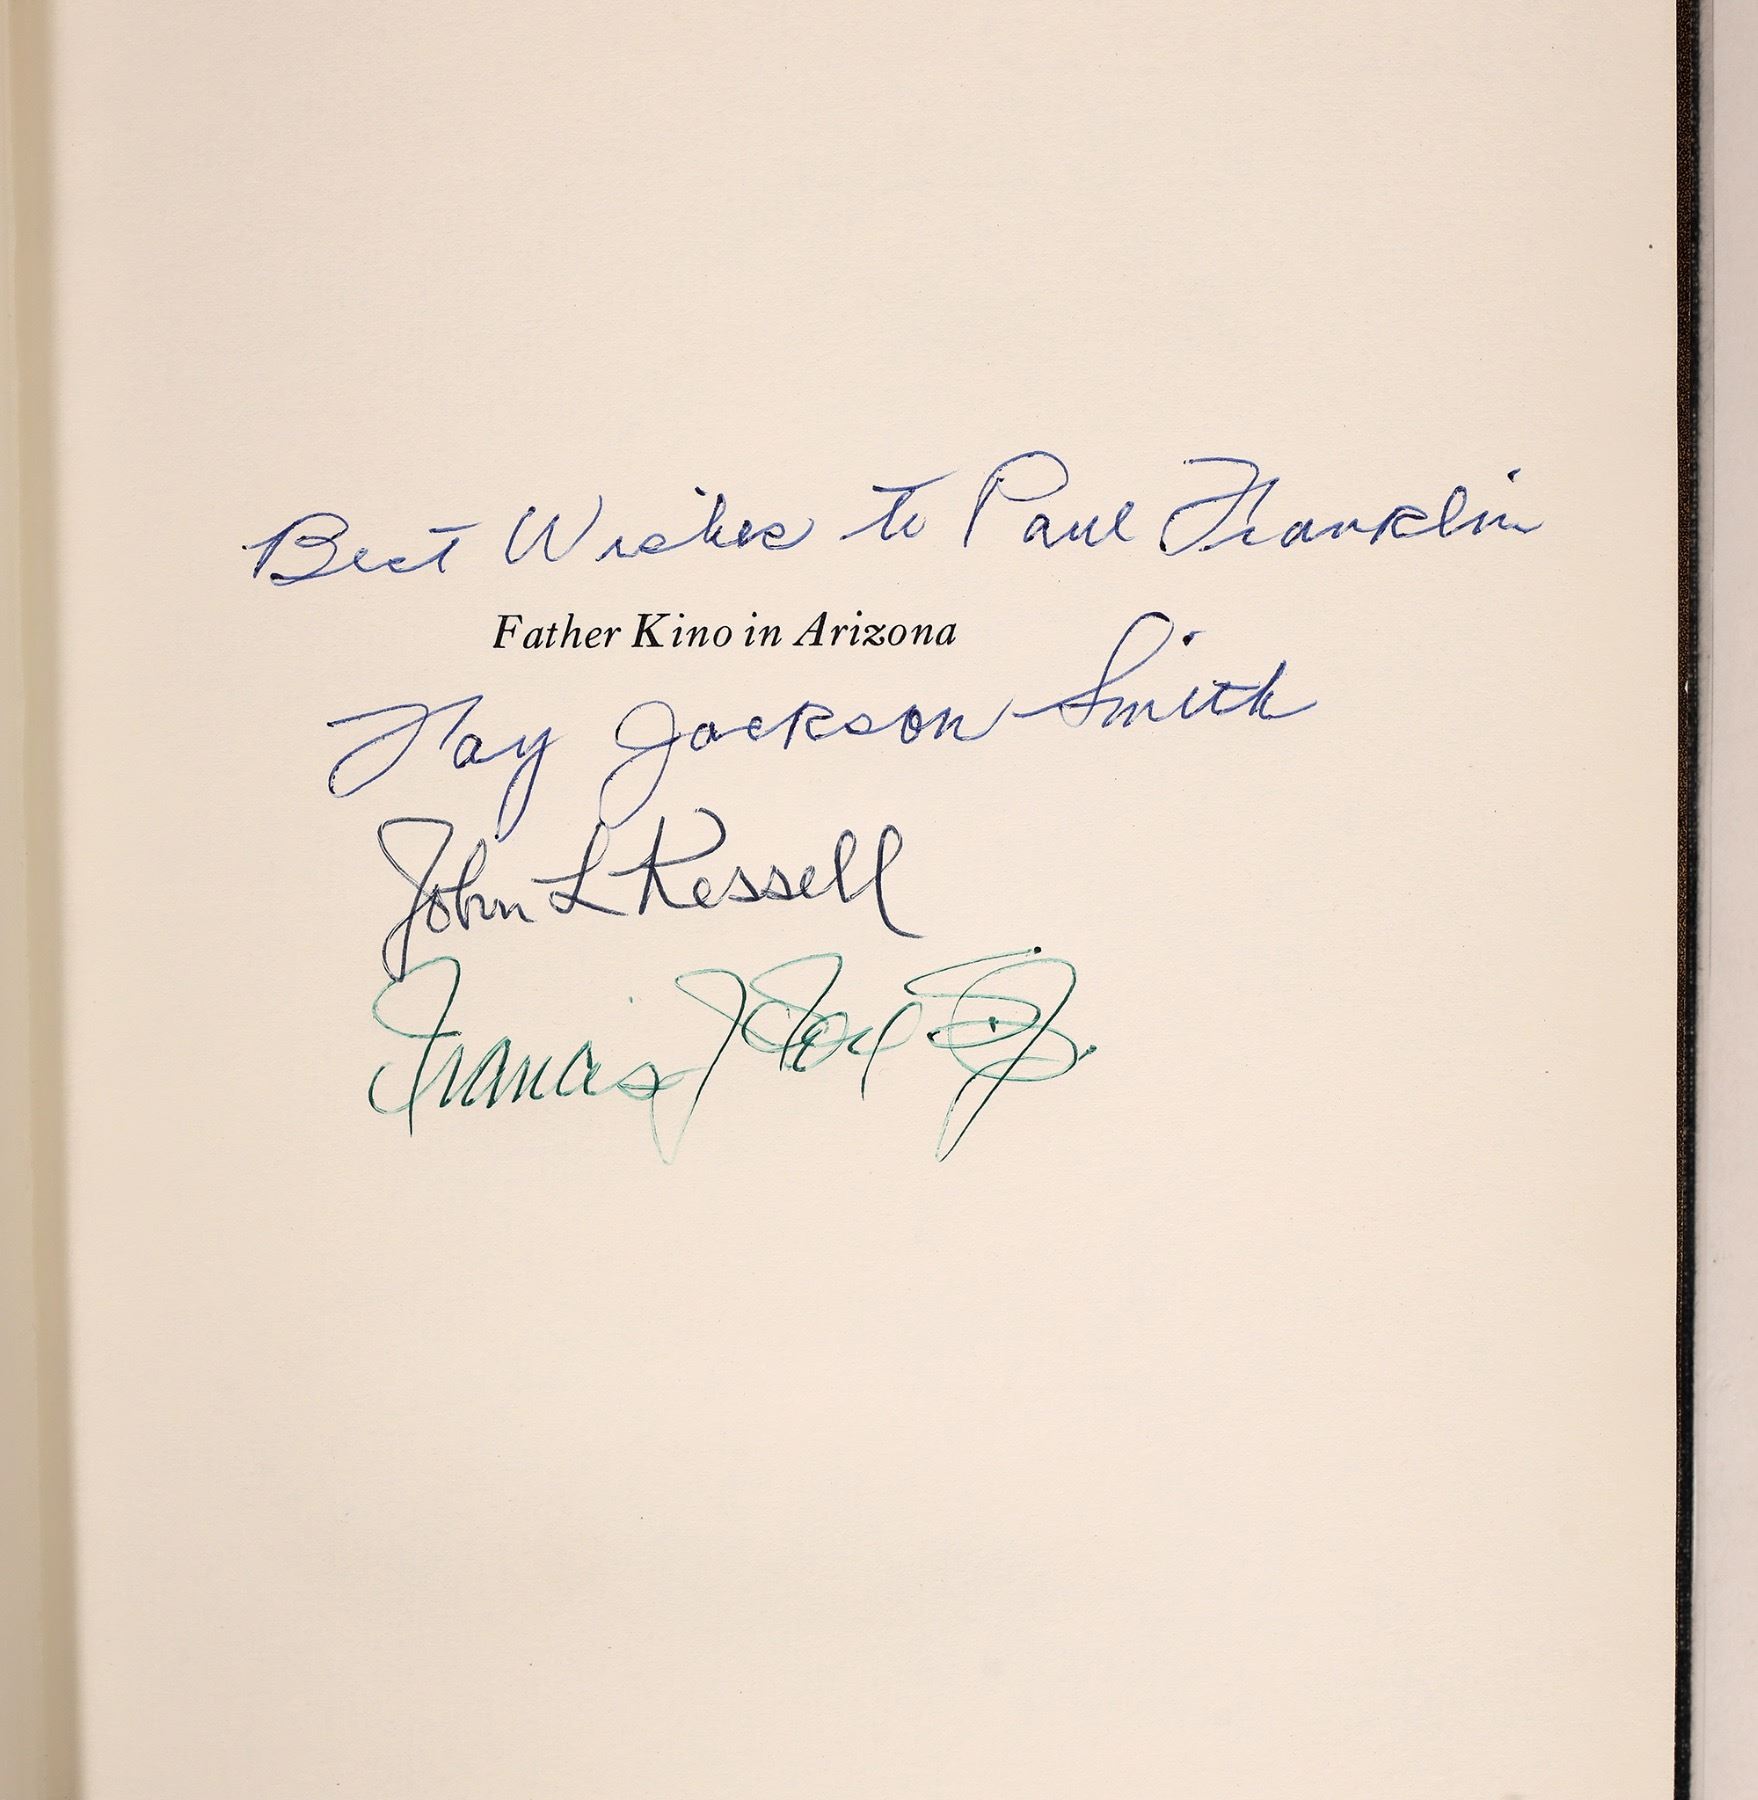 Best Wishes to Paul Franklin
Father Kino in Arizona
Fay Jackson Smith
John L Kessell
Francis J Fox S.J.